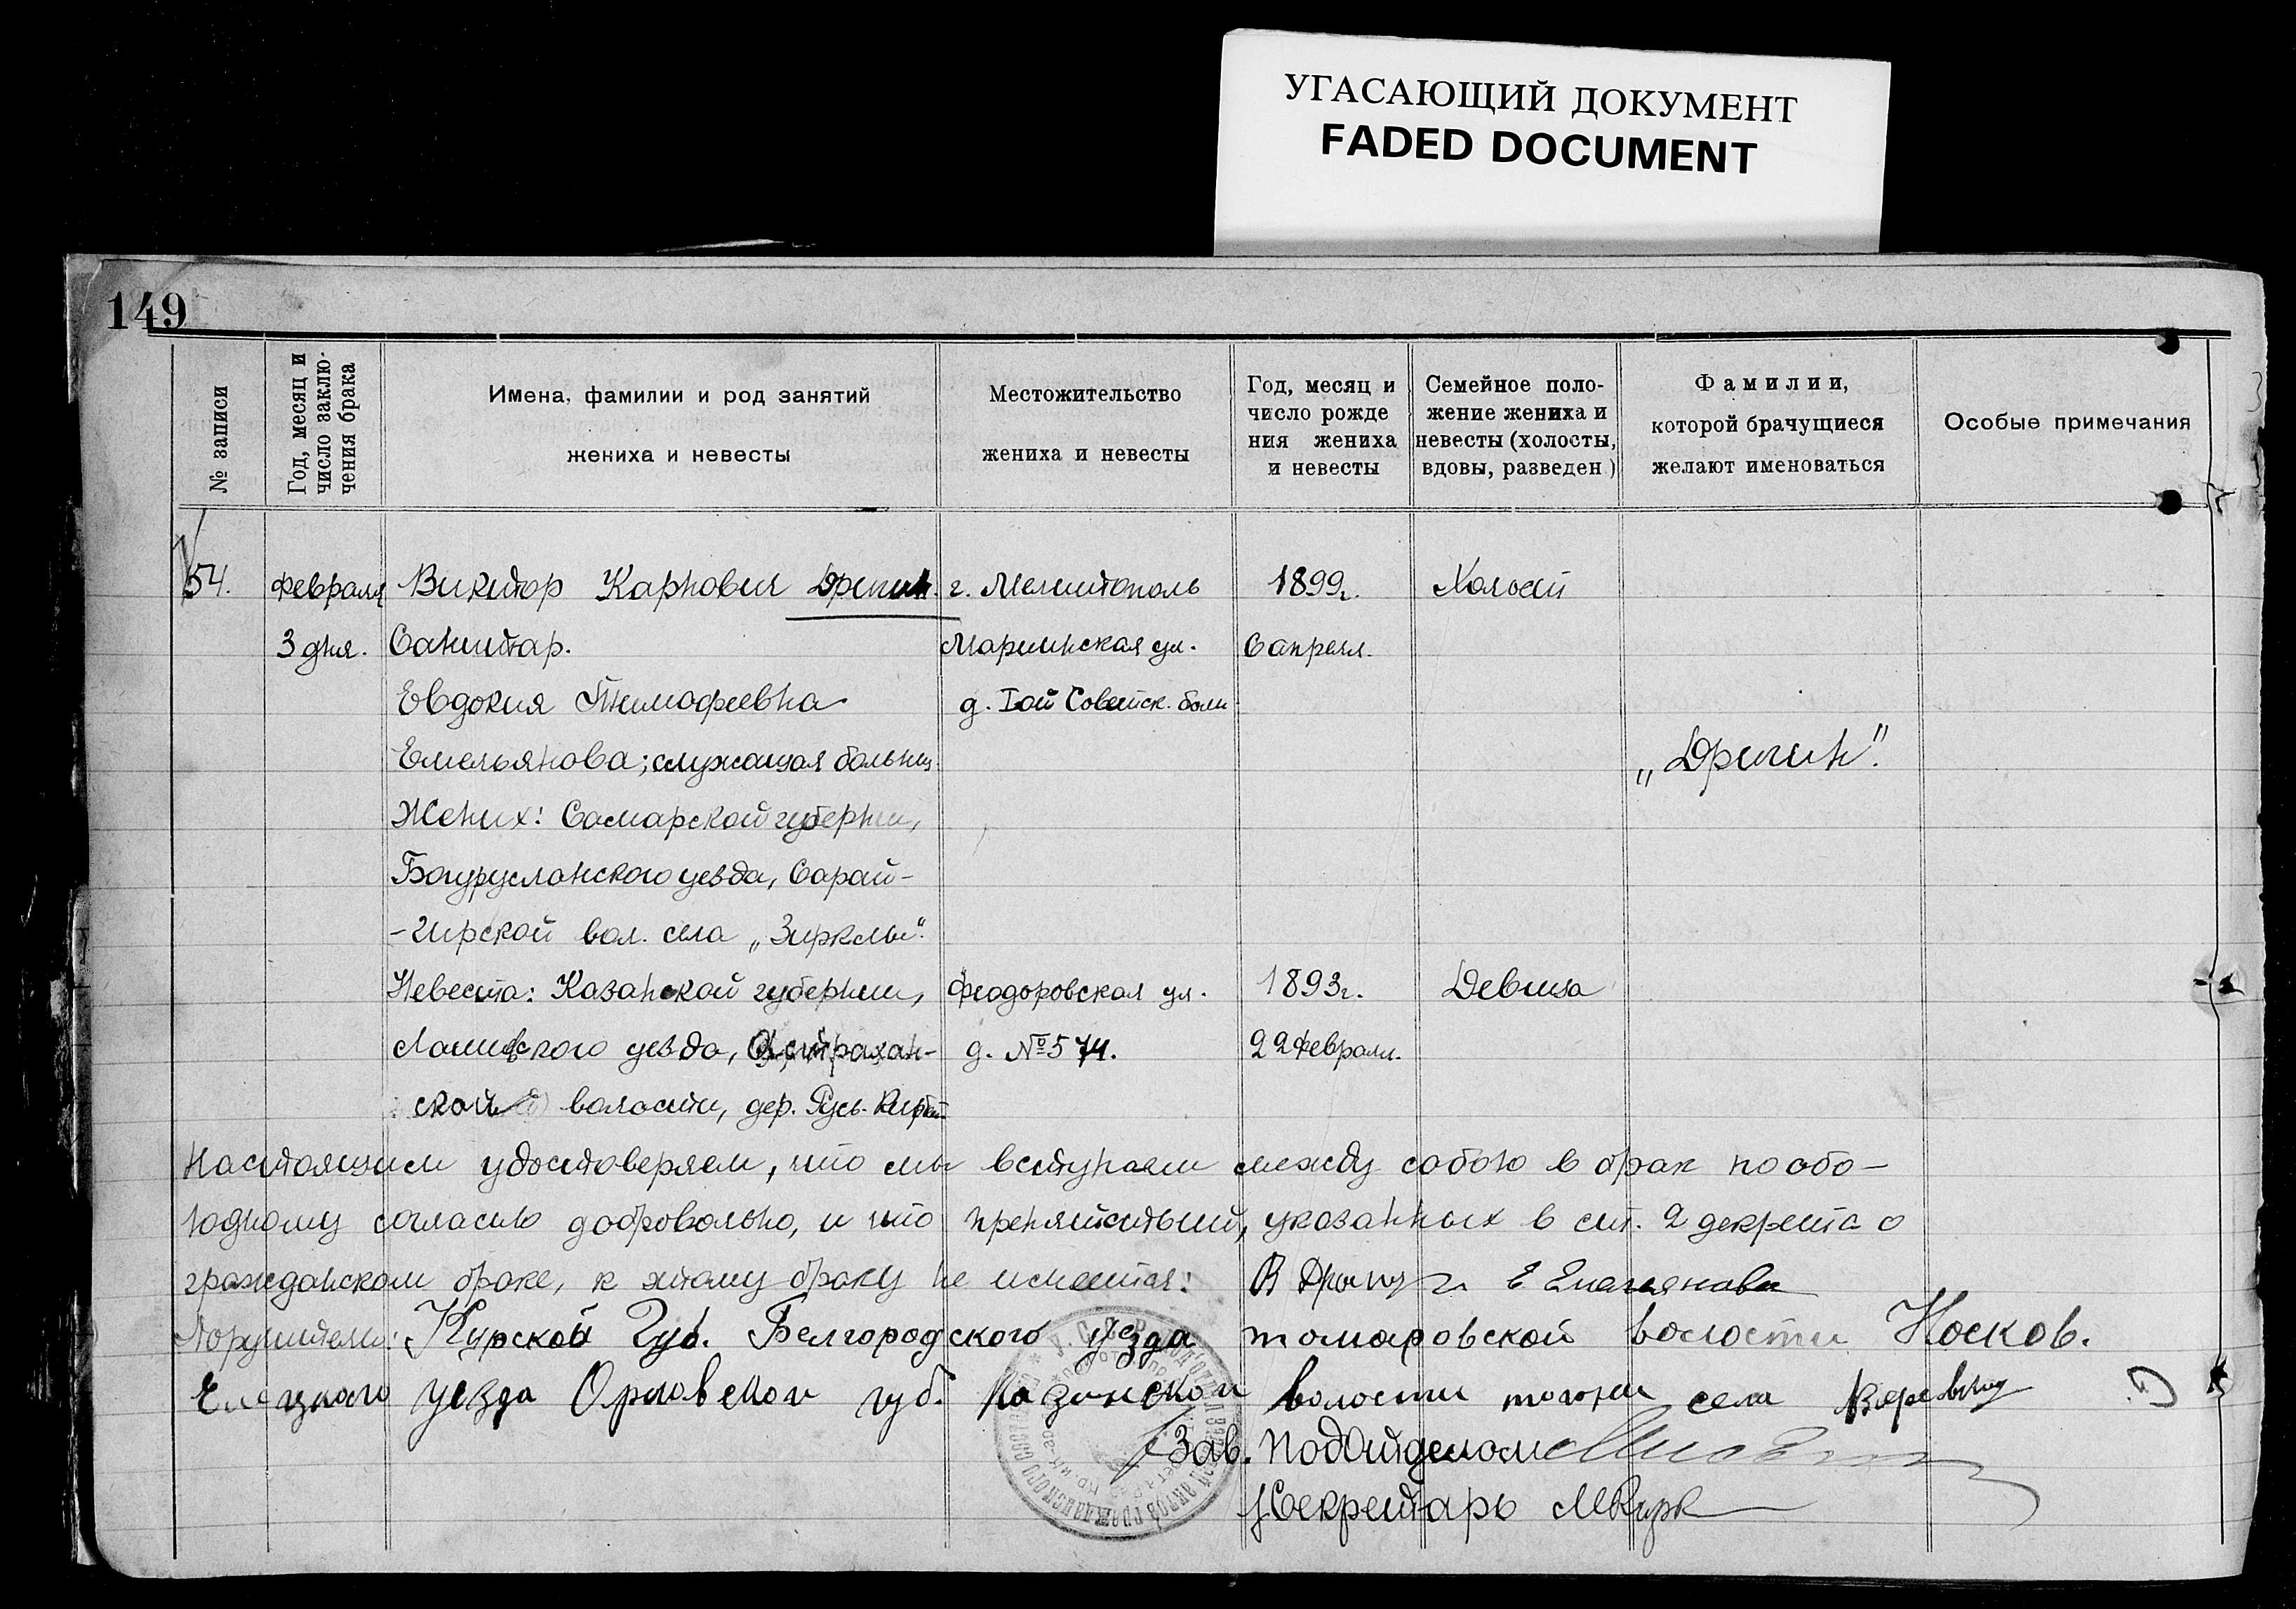 УГАСАЮЩИЙ ДОКУМЕНТ
FADED DOCUMENT
149
№ записи
Год, месяц и
число заклю-
чения брака
Имена, фамилии и род занятий
жениха и невесты
Местожительство
жениха и невесты
Год, месяц и
число рожде
ния жениха
и невесты
Семейное поло-
жение жениха и
невесты (холосты,
вдовы, разведен)
Фамилии,
которой брачущиеся
желают именоваться
Особые примечания
54.
Февраля
3 дня.
Виктор Карпович
Санитар.
Евдокия Тимофеевна
Емельянова; служащая больниц.
Жених: Самарской губернии,
Богурусланского уезда, Сарай-
-гирской вол. села
Невеста: Казанской губернии,
уезда, Астрахан-
ской волости, дер. Русь.
г. Мелитополь
Мариинская ул.
д. Iой Советск. боли
Феодоровская ул.
д. №574.
1899г.
6 апреля.
1893г.
22 Февраля.
Холост
Девица
„Дригин".
Настоящим удостоверяем, что мы вступаем между собою в брак по обо-
юдному согласию добровольно, и что препятствий, указанных в ст. 2 декрета о
гражданском браке, к этому браку не имеется: Е Емельянова
Поручители: Курской Губ. Белгородского уезда томаровской волости Носков.
Елецкого уезда Орловской губ. Казинской волости того же села
Зав. подОтделом
Секретарь